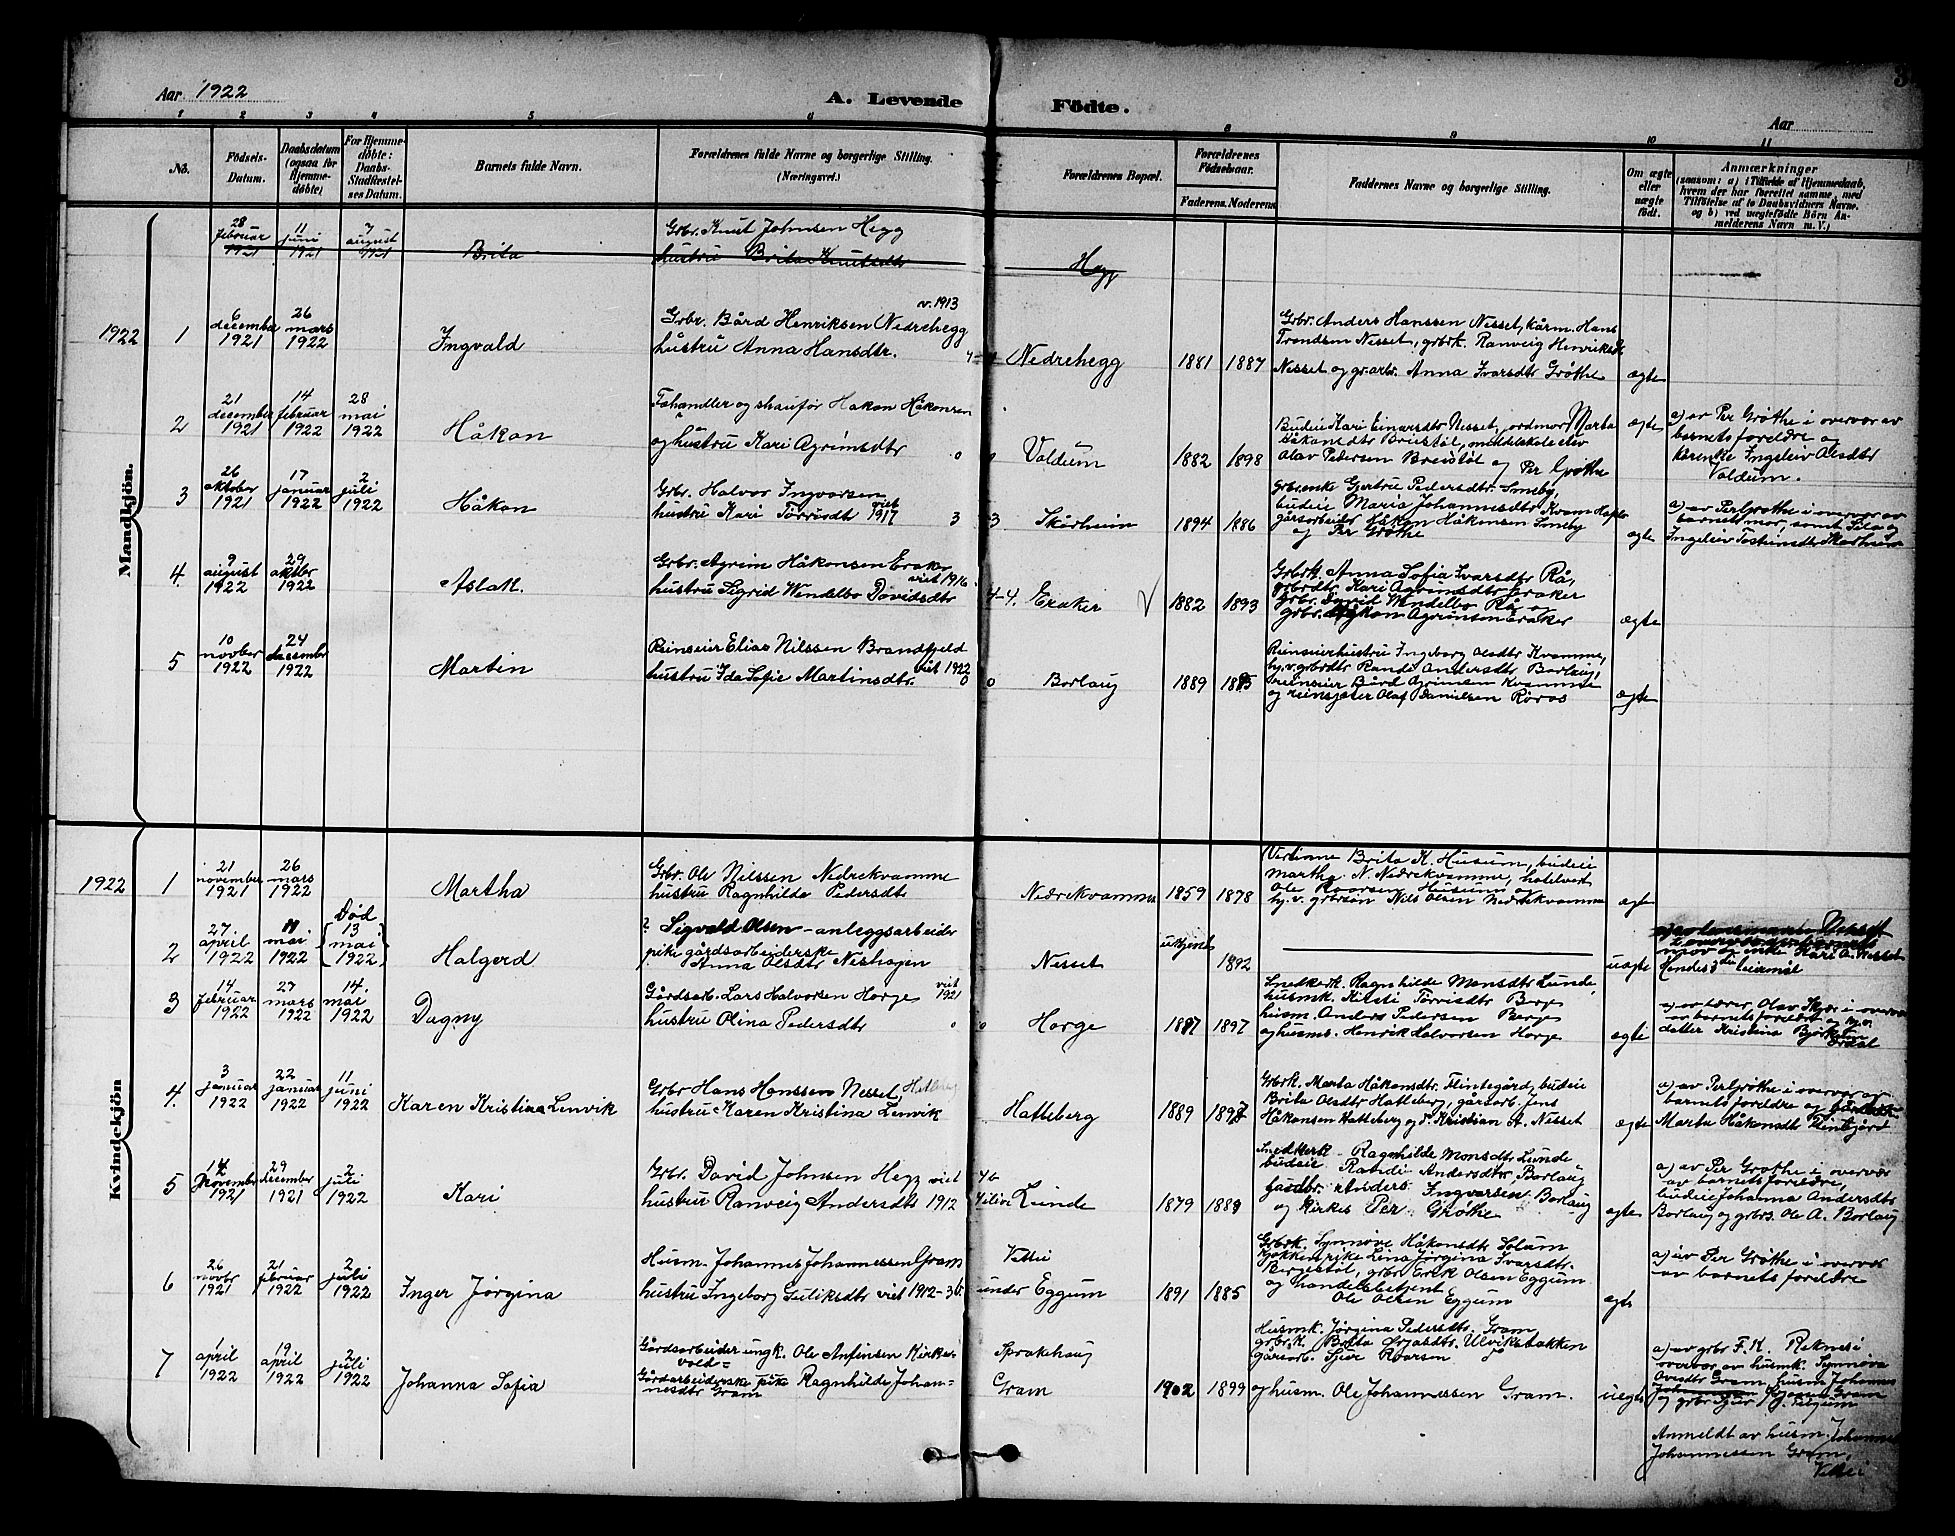 Aar 1922
A. Levende Fødte.
Aar
1 2 3 4 5 6 8 9 10 11
No.
Fødsels-Datum.
Daabsdatum (ogsaa for Hjemmedøbte)
For Hjemmedøbte: Daabs-Stadfæstelses Datum.
Barnets fulde Navn.
Forældrenes fulde Navne og borgerlige Stilling.
(Næringsvei.)
Forældrenes Bopæl.
Forældrenes Fødselsaar.
Faderens. Moderens.
Faddernes Navne og borgerlige Stilling.
Om ægte eller uægte født.
Anmærkninger
(saasom: a) i Tilfælde af Hjemmedaab, hvem der har forrettet samme, med Tilføielse af to Daabsvidners Navne. og b) ved uægtefødte Børn Anmelderens Navn m. V.)
Mandkjøn.
28 februar 1921
11 juni 1921
7 august 1921
Brita
Grbr. Knut Johnsen Hegg
hustru Brita Knutsdtr
Hegg
1922
1
6 december 1921
26 mars 1922
Ingvald
v. 1913
Grbr. Bård Henriksen Nedrehegg
hustru Anna Hansdtr.
Nedrehegg
1881 1887
Grbr. Anders Hanssen Nesset, kårm. Hans
Trondsen Nesset, grbrk. Ranveig Henriksdt
Nesset og grarb. Anna Ivarsdtr Grøthe
ægte
2
21 december 1921
14 februar 1922
28 mai 1922
Håkon
Fehandler og shauför Hakon Håkonsen
og hustru Kari Agrimsdtr
0 0
Voldum
1882 1898
Budeie Kari Einarsdtr Nesset, ordmor Marta
Håkansdtr Breistøl, middelskole elev
Olav Pedersen Breistøl og Per Grøthe
ægte
a) av Per Grøthe i overvær av
barnets foreldre og
kårenke Ingeleiv Olsdtr
Voldum.
3
26 oktober 1921
17 januar 1922
2 juli 1922
Håkon
Grbr. Halvor Ingvarsen
hustru Kari Torrisdtr viet 1917
3 3
Skårheim
1894 1886
Grbr.enke Gjertru Pedersdtr. Smeby,
budeie Maria Johannesdtr Kvam
gårsarbeider Håkon Håkonsen Smeby
og Per Grøthe
ægte
a) av Per Grøthe i overvær av
barnets mor, samt
Ingeleiv Skårheim
4.
9 august 1922
29 oktbr 1922
Aslak.
Grbr. Agrim Håkonsen Eraker
viet 1916
hustru Sigrid Wendelbo Davidsdtr
4-4.
Eraker
1882 1893
Grbrk. Anna Sofia Ivarsdtr Rå,
grbrdtr. Kari Agrimsdtr Eraker
grbr. David Wendelbo Rå og
grbr. Håkon Agrimson Eraker
ægte
5
10 novber 1922
24 desember 1922
Martin
Reinseier Elias Nilssen Brandfjeld
hustru Ida Sofie Martinsdtr. viet 1922
0 0
Borlaug
1889 1885
Reinseierhustru Ingeborg Olsdtr Kvamme,
hj. v. grbrdtr Randi Andersdtr Borlaug,
reinseier Bård Agrimsen Kvamme
og reinsgjeter Olaf Danielsen Røros
ægte
Kvindekjøn
1922
1
21 november 1921
26 mars 1922
Martha
Grbr. Ole Nilssen Nedrekvamme
hustru Ragnhilda Pedersdt
Nedrekvamme
1859 1878
Vertinne Brita K. Husum, budeie
Martha N. Nedrekvamme, hotelvert
Ole Roarsen Husum og
hj. v. grbrsøn Nils Olsen Nedrekvamme
ægte
2
27. april 1922
11 mai 1922
Død 13 mai 1922
Halgerd
? Sigvald Olsen - anleggsarbeider
pike gårdsarbeiderske
Anna Olsdtr Neshagen
Nesset
ukjent
1892
uægte
mor og enke Kari A. Nesset
Hendes 3die leiermål
3
14 februar 1922
27 mars 1922
14. mai 1922
Dagny
Gårdsarb. Lars Halvorsen Horge viet 1921
hustru Olina Pedersdtr
0 0
Horge
1887 1897
Snedkerk. Ragnhilde Monsdtr Lunde,
husmk. Kirsti Torrisdtr Berge
husm. Anders Pedersen Berge
og husms. Henrik Halvorsen Horge
ægte
a) av lærer Olav Skjær i overvær
av barnets foreldre og hj. v.
datter Kristina Bjørkum
Ørdal
4.
3 januar 1922
22 januar 1922
11 juni 1922
Karen Kristina Lenvik
Grbr Hans Hanssen Nesset, Hatleberg
hustru Karen Kristina Lenvik
Hatleberg
1889 1897
Grbrk. Marta Håkonsdtr. Flintegård, budeie
Brita Olsdtr Hatleberg, gårsarb. Jens
Håkonsen Hatleberg og F. Kristian H. Nesset
ægte
a) av Per Grøthe i overvær av
barnets foreldre og
Marta Håkonsdt Flintegård
5
14 november 1921
29 desember 1921
2 juli 1922
Kari
Grbr. David Johnsen Hegg viet
hustru Ranveig Andersdtr 1912
4 b
Lunde
1879 1889
Snedkerk - Ragnhilde Monsdtr. Lunde
budeie Randi Andersdtr Borlaug
Anders Ingvarsen Borlaug
og kirkes. Per Grøthe
ægte
a) av Per Grøthe i overvær
av barnets foreldre,
budeie Johanna Andersdtr
Borlaug og grbrs. Ole A. Borlaug
6
26 novbr 1921
21 februar 1922
2 juli 1922
Inger Jørgina
Husm. Johannes Johannessen Gram
hustru Ingeborg Guliksdtr viet 1912 - 3 b.
Vettei
under Eggum
1891 1885
Grbrk. Synnøve Håkonsdtr Solum
kjøkkenpike Lina Jørgina Ivarsdtr.
Bergestøl, grbr Erik Olsen Eggum
og handelsbetjent
Ole Olsen Eggum
ægte
a) av Per Grøthe i overvær
av barnets foreldre
7
1 april 1922
19 april 1922
2 juli 1922
Johanna Sofia
Gårdsarbeider ungk. Ole Anfinsen Kirke-
vold =
Gårdarbeiderske pike Ragnhilde Johan-
nesdtr Gram
Sprakehaug
Gram
1902 1899
Husmk. Jørgina Pedersdtr. Gram
grbr.k. Brita Ulvikstakken
gårsarb. Sjur Roarson
og husm. Ole Johannessen Gram.
uægte
a) av grbr F. K. Reknes i
overvær av husmk. Synnøva
Gram, husm Johannes
Gram
og grbr Sjur
Anmeldt av husm. Johannes
Johannessen Gram,
Vettei